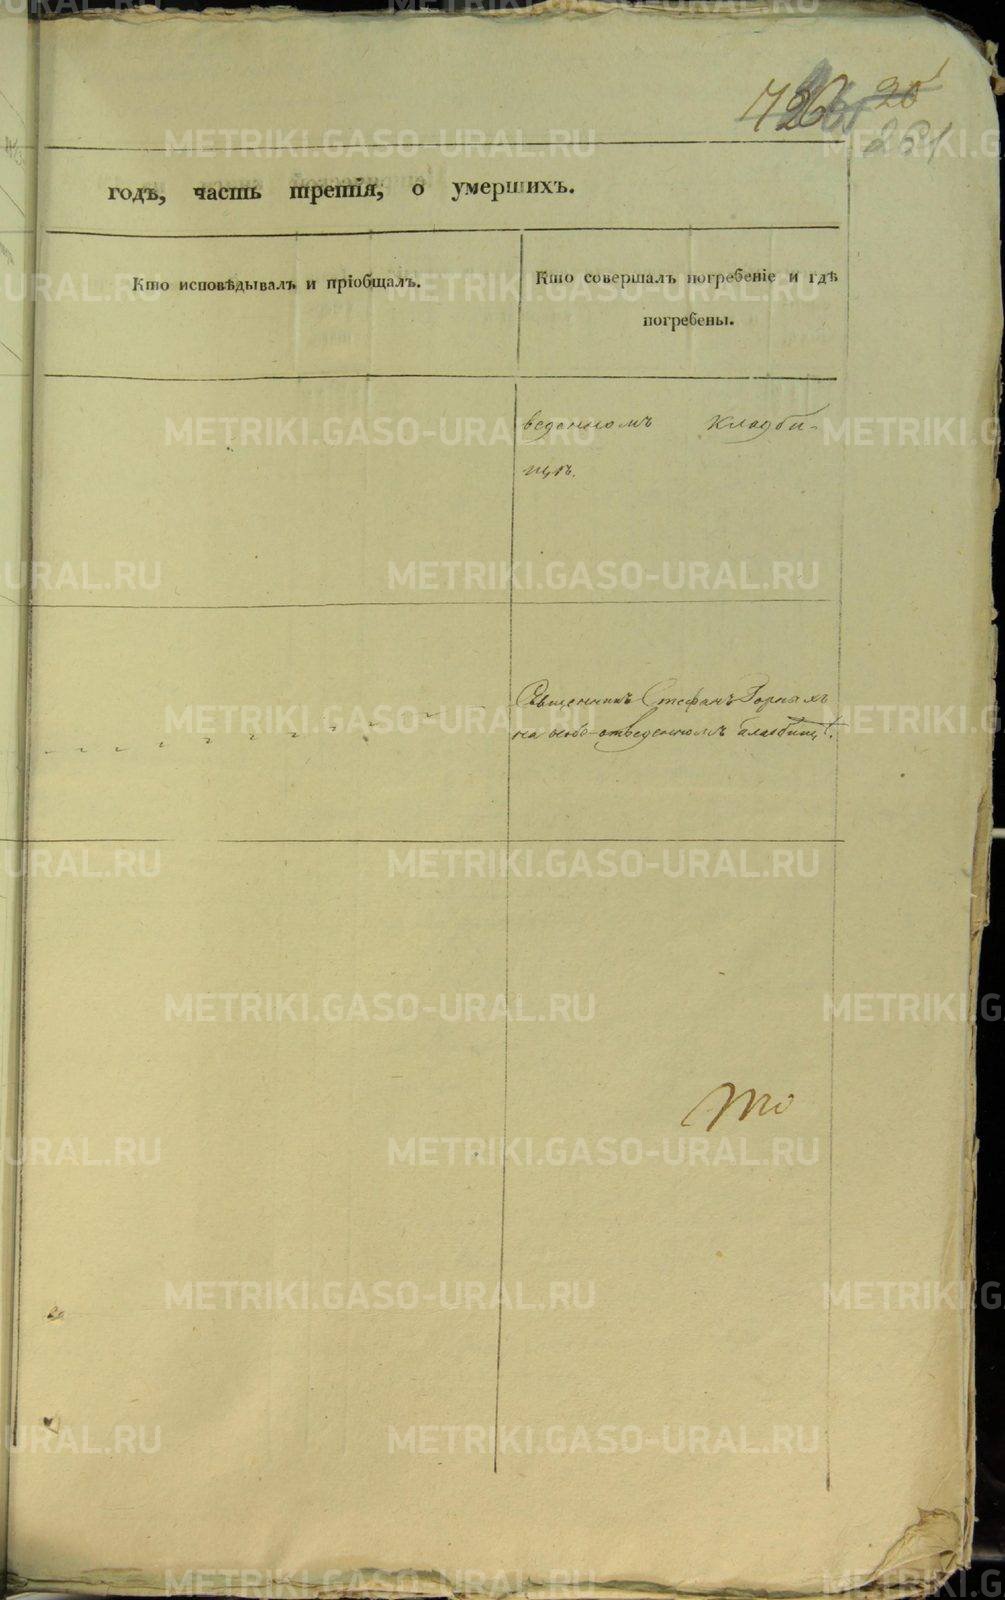 20
261
годъ, часть третія, о умершихъ.
Кто исповѣдывалъ и пріобщалъ.
Кто совершалъ погребеніе и гдѣ
погребены.
веденномъ кладби-
щѣ.
Священникъ Стефанъ Горныхъ
на особо-отведенномъ кладбищѣ.
METRIKI.GASO-URAL.RU